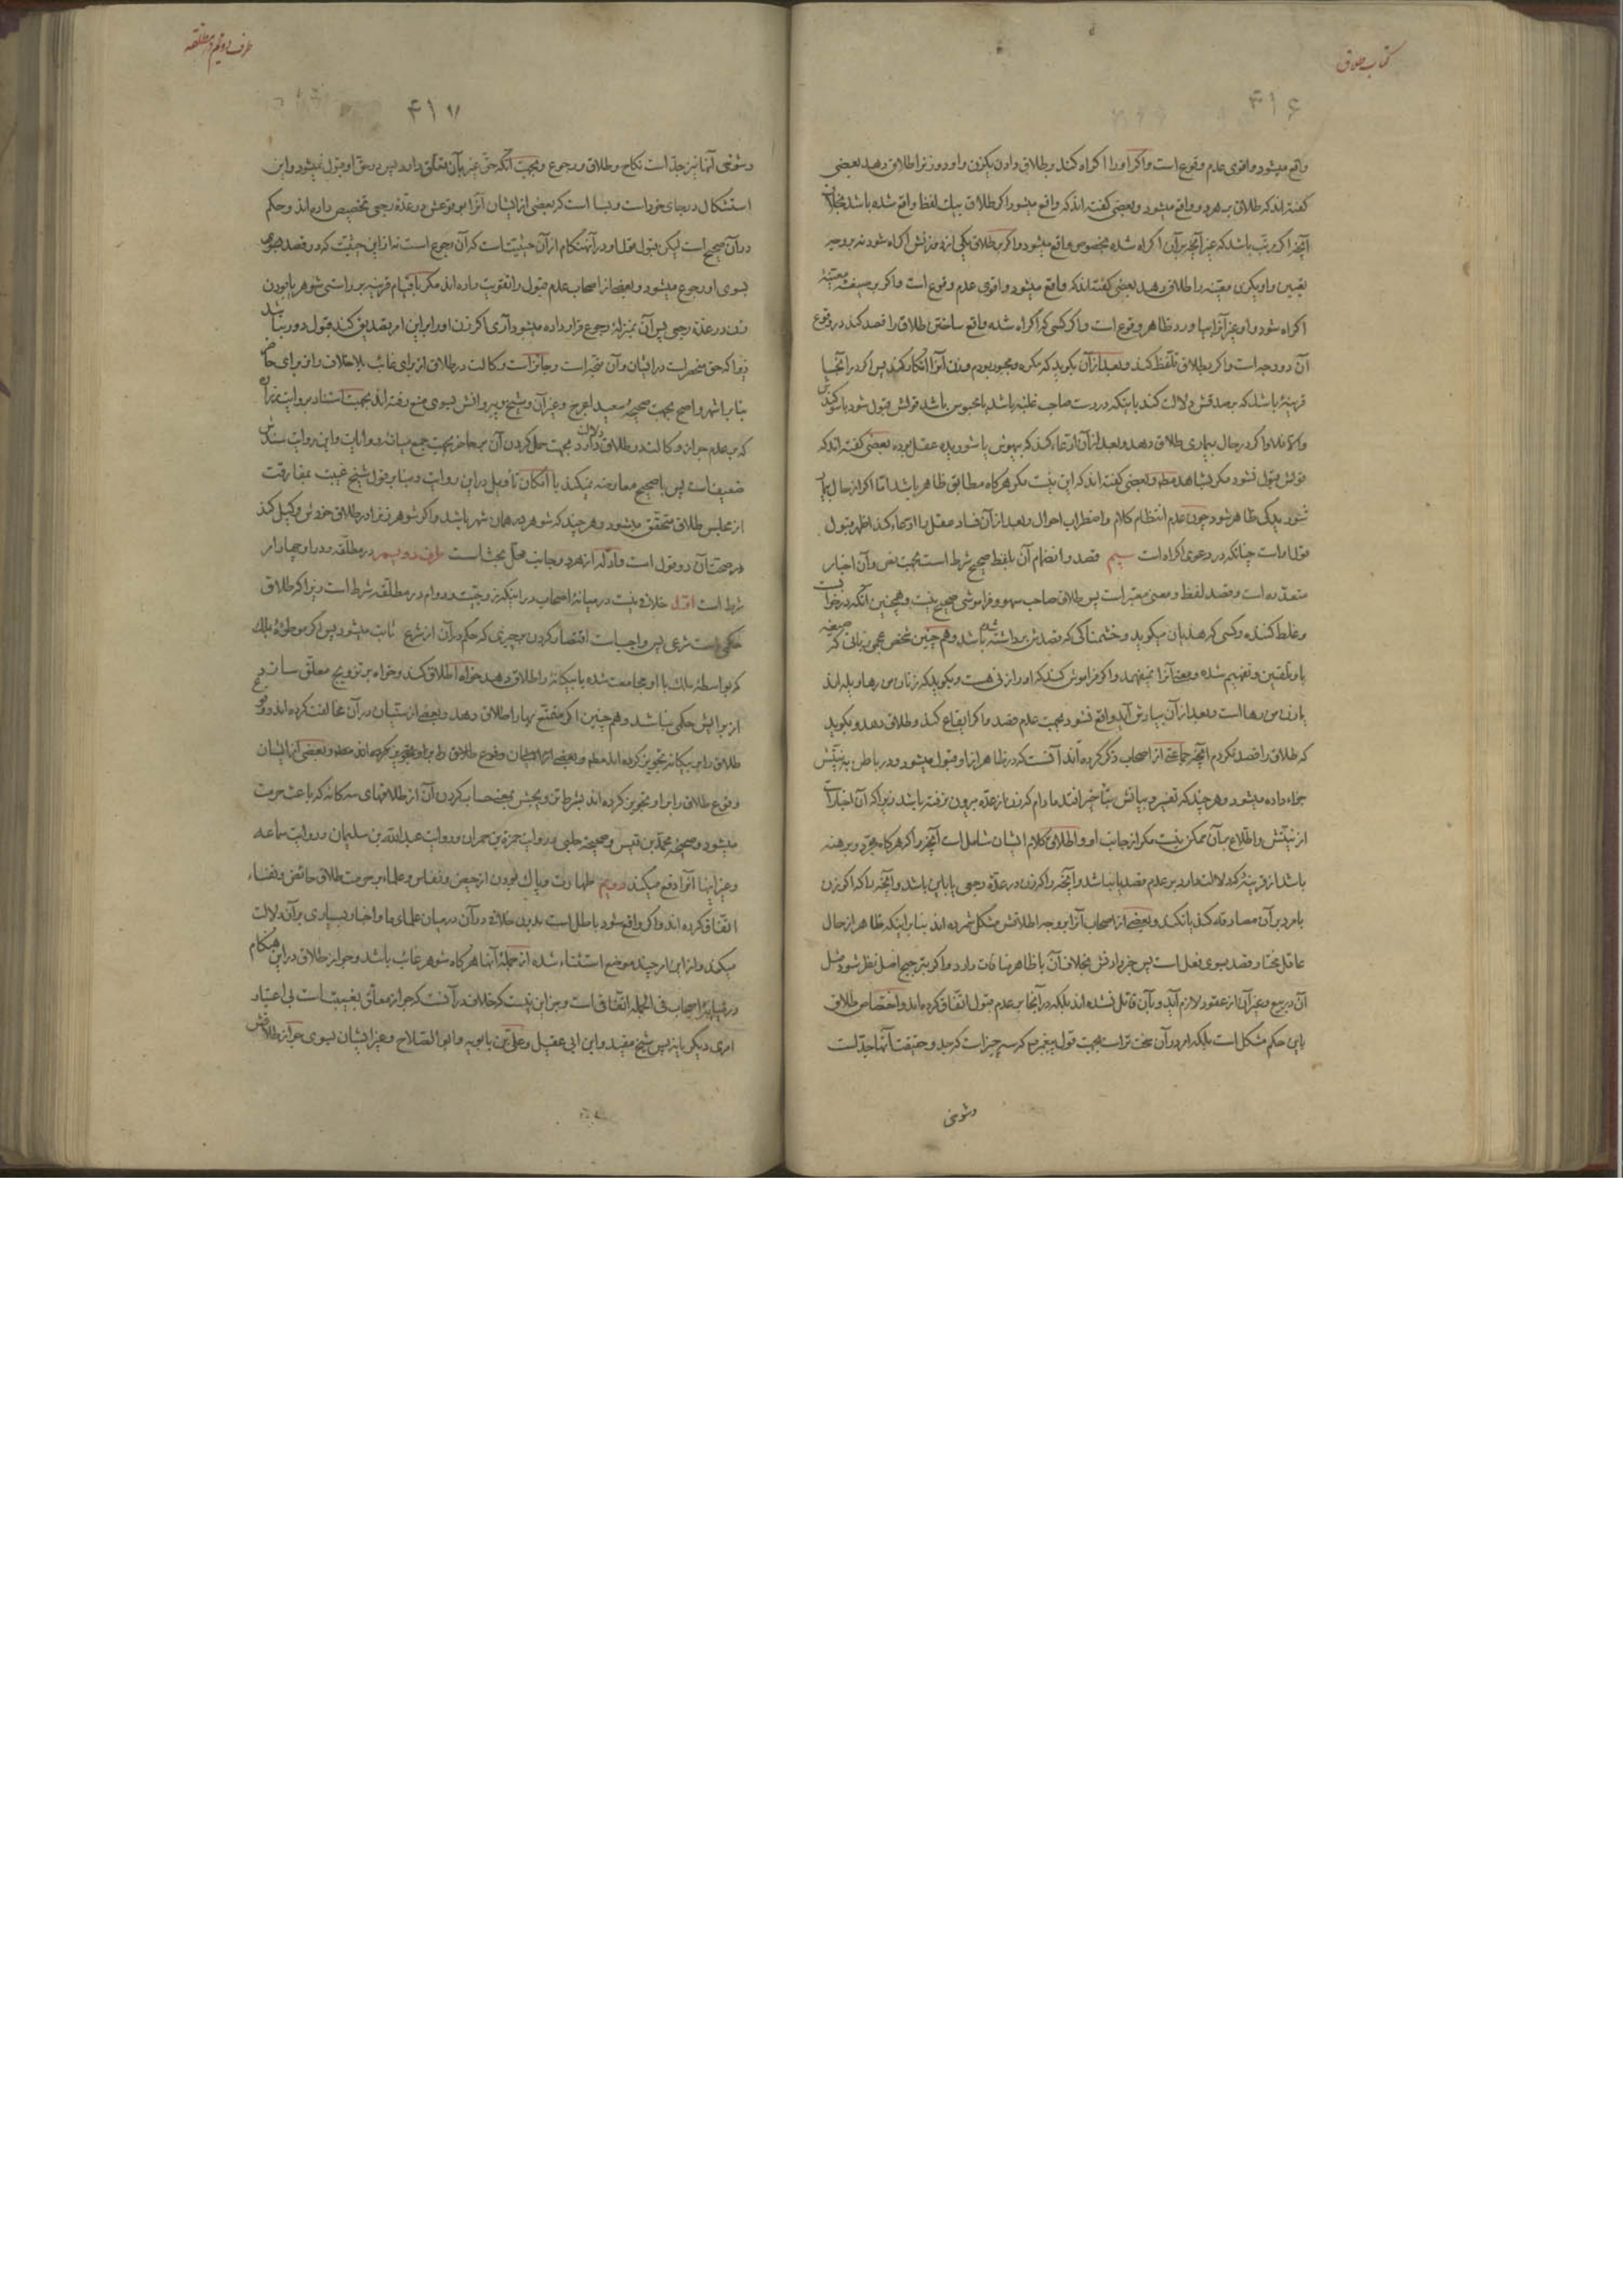 کتاب طلاق
۴۱۶
واقع میشود و اقوی عدم وقوع است و اگر او را اکراه کنند بطلاق دادن یکزن و او دو زنرا طلاق دهد بعضی
گفته‌اند که طلاق هر دو واقع میشود و بعضی گفته‌اند که واقع میشود اگر طلاق بیک لفظ واقع شده باشد بخلاف
آنچه اگر بترتیب باشد که غیر آنچه بر آن اکراه شده بخصوص واقع میشود و اگر بطلاق یکی از دو زنش اکراه شود نه بر وجه
تعیین و او یکی معینه را طلاق دهد بعضی گفته‌اند که واقع میشود و اقوی عدم وقوع است و اگر بر صیغهٔ معینهٔ
اکراه شود و او غیر آنرا بیاورد ظاهر وقوع است و اگر کسی که اکراه شده واقع ساختن طلاق را قصد کند در وقوع
آن دو وجه است و اگر بطلاق تلفظ کند و بعد از آن بگوید که مکره و مجبور بودم و زن آنرا انکار کند پس اگر در آنجا
قرینهٔ باشد که بر صدقش دلالت کند باینکه در دست صاحب غلبه باشد یا محبوس باشد قولش قبول شود با سوگندش
والا فلا و اگر در حال بیماری طلاق دهد و بعد از آن ادعا کند که بیهوش یا شوریده عقل بوده بعضی گفته‌اند که
قولش قبول نشود مگر بشاهد مطلقا و بعضی گفته‌اند که این نیست مگر هر گاه مطابق ظاهر باشد اما اگر از حال
شوریدگی ظاهر شود چون عدم انتظام کلام و اضطراب احوال و بعد از آن فساد عقل را ادعا کند اظهر قبول
قول اوست چنانکه در دعوی اکراه است سیم قصد و انضمام آن بلفظ صحیح شرط است بجهت نص و آن اخبار
متعدده است و قصد لفظ و معنی معتبر است پس طلاق صاحب سهو و فراموشی صحیح نیست و همچنین آنکه در خواب است
و غلط کننده و کسی که هذیان میگوید و خشمناکی که قصدش برداشته شده باشد و هم چنین شخص عجمی زبانی که صیغه
باو تلقین و تفهیم شده و معنی آنرا نمیفهمد و اگر فراموش کند که او را زنی هست و بگوید که زنان من رها و یله‌اند
یا زن من رها است و بعد از آن بیادش آید واقع نشود بجهت عدم قصد و اگر ایقاع کند و طلاق دهد و بگوید
که طلاق را قصد نکردم آنچه جماعتی از اصحاب ذکر کرده‌اند آنست که در ظاهر از او قبول میشود و در باطن به نیتش
جزاء داده میشود و هر چند که تفسیر و بیانش بتأخیر افتد مادام که زن از عده بیرون نرفته باشد زیرا که آن اخبار است
از نیتش و اطلاع بر آن ممکن نیست مگر از جانب او و اطلاق کلام ایشان شامل است آنچه را که هر گاه مجرد و برهنه
باشد از قرینهٔ که دلالت دارد بر عدم قصد یا نباشد و آنچه را که زن در عدهٔ رجعی یا باین باشد و آنچه را که اگر زن
با مرد بر آن مصادقه کند یا نکند و بعضی از اصحاب آنرا بر وجه اطلاقش مشکل شمرده‌اند بنا بر اینکه ظاهر از حال
عاقل مختار قصد بسوی فعل است پس خبر دادنش بخلاف آن با ظاهر منافات دارد و اگر بترجیح اصل نظر شود مثل
آن در بیع و غیر آن از عقود لازم آید و بآن قائل نشده‌اند بلکه در آنجا بر عدم قبول اتفاق کرده‌اند و اختصاص طلاق
باین حکم مشکل است بلکه امر در آن سخت‌تر است بجهت قول پیغمبر ص که سه چیز است که جد و حقیقت آنها جد است
و شوخی
طرف دویم در مطلقه
۴۱۷
و شوخی آنها نیز جد است نکاح و طلاق و رجوع و بجهت آنکه حق غیر بآن تعلق دارد پس در حق او قبول نمیشود و این
استشکال در جای خود است و بسا است که بعضی از ایشان آنرا بوقوعش در عدهٔ رجعی تخصیص داده‌اند و حکم
در آن صحیح است لیکن قبول قول او در آنهنگام از آن حیثیت است که آن رجوع است نه از این حیثیت که در قصد
بسوی او رجوع میشود و بعضی از اصحاب عدم قبول را تقویت داده‌اند مگر با قیام قرینه بر راستی شوهر یا بودن
زن در عدهٔ رجعی پس آن بمنزلهٔ رجوع قرار داده میشود آری اگر زن او را بر این امر تصدیق کند قبول دور نباشد
زیرا که حق منحصر است در ایشان و آن متجه است و جائز است وکالت در طلاق از برای غائب بلا خلاف و از برای حاضر
بنا بر اشهر و اصح بجهت صحیحهٔ سعید اعرج و غیر آن و شیخ و پیروانش بسوی منع رفته‌اند بجهت استناد بروایت زراره
که بر عدم جواز وکالت در طلاق دلالت دارد بجهت حمل کردن آن بر حاضر بجهت جمع میانهٔ روایات و این روایت سندش
ضعیف است پس با صحیح معارضه نمیکند با امکان تأویل در این روایت و بنا بر قول شیخ غیبت بمفارقت
از مجلس طلاق متحقق میشود و هر چند که شوهر در همان شهر باشد و اگر شوهر زنرا در طلاق خودش وکیل کند
در صحت آن دو قول است و ادله از هر دو جانب محل بحث است طرف دویم در مطلقه و در او چهار امر
شرط است اول خلافی نیست در میانهٔ اصحاب در اینکه زوجیت و دوام در مطلقه شرط است زیرا که طلاق
حکمی است شرعی پس واجبست اقتصار کردن بر چیزی که حکم در آن از شرع ثابت میشود پس اگر موطوئهٔ ملک
که بواسطهٔ ملک با او مجامعت شده یا بیگانه را طلاق دهد خواه اطلاق کند و خواه بر تزویج معلق سازد
از برایش حکمی نباشد و هم چنین اگر متمتع بها را طلاق دهد و بعضی از سنیان در آن مخالفت کرده‌اند و وقوع
طلاق را بر بیگانه تجویز کرده‌اند مطلقا و بعضی از ایشان وقوع طلاق را بر او تجویز کرده‌اند مطلقا و بعضی از ایشان
وقوع طلاق را بر او تجویز کرده‌اند بشرط تزویجش بمعنی حساب کردن آن از طلاقهای سه‌گانه که باعث حرمت
میشود و صحیحهٔ محمد بن قیس و صحیحهٔ حلبی و روایت حمزة بن حمران و روایت عبد الله بن سلیمان و روایت سماعه
و غیر اینها آنرا دفع میکند دویم طهارت و پاک بودن از حیض و نفاس و علماء بر حرمت طلاق حائض و نفساء
اتفاق کرده‌اند و اگر واقع شود باطل است بدون خلافی در آن در میان علمای ما و اخبار بسیاری بر آن دلالت
میکند و از این امر چند موضع استثناء شده از جمله آنها هر گاه شوهر غائب باشد و جواز طلاق در این هنگام
در میانهٔ اصحاب فی الجمله اتفاقی است و جز این نیست که خلاف در آنست که جواز معلق بغیبت است بی اعتبار
امری دیگر یا نه پس شیخ مفید و ابن ابی عقیل و علی بن بابویه و ابو الصلاح و غیر ایشان بسوی جواز طلاقش